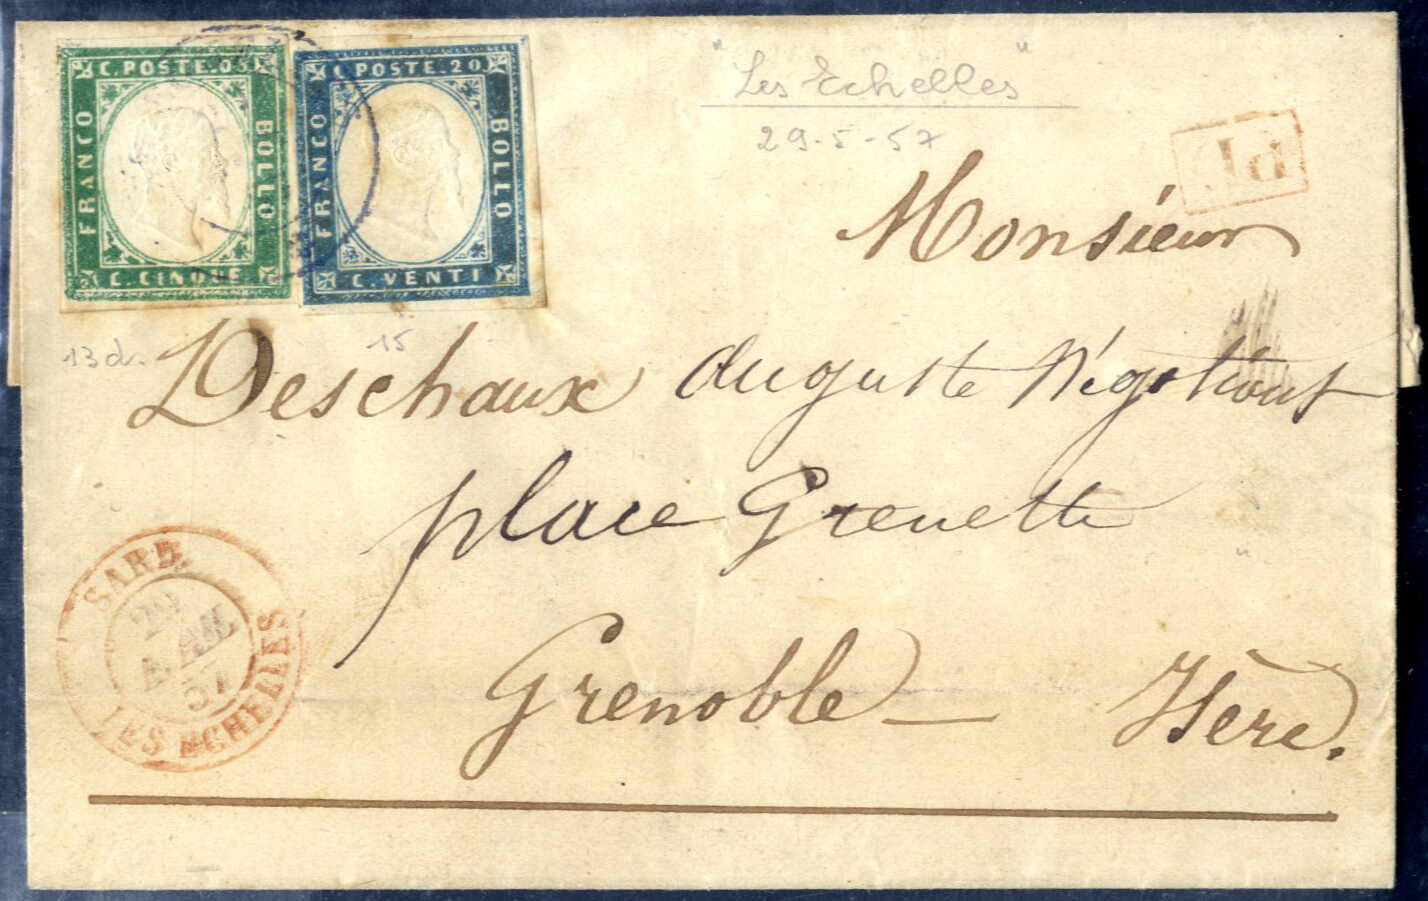 C. POSTE. 05
FRANCO
BOLLO
C. CINQUE
C. POSTE. 20
FRANCO
BOLLO
C. VENTI
"Les Echelles"
29-5-57
P.D.
13d.
15
Monsieur
Deschaux auguste Négotiant
place Grenette
Grenoble — Isère.
SARD.
29
57
LES ECHELLES